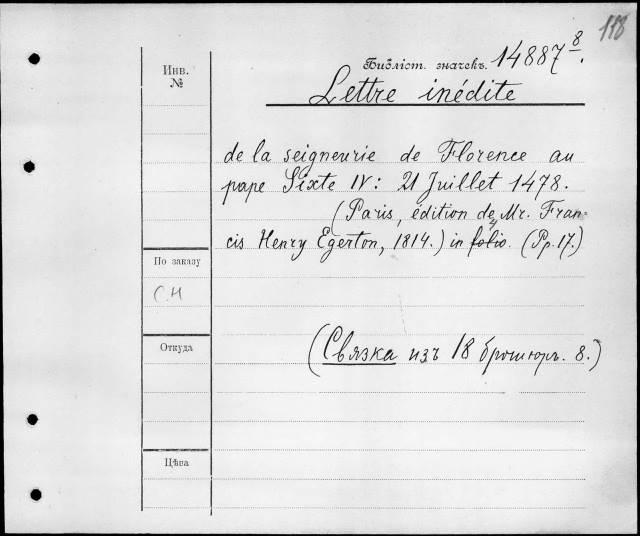 118
Инв.
№
Библіот. значекъ. 14887 8/.
Lettre inédite
de la seigneurie de Florence au
pape Sixte IV: 21 Juillet 1478.
(Paris, édition de Mr. Fran-
cis Henry Egerton, 1814.) in folio. (Pp. 17.)
По заказу
С.Н
Откуда
(Связка изъ 18 брошюръ. 8.)
Цѣна